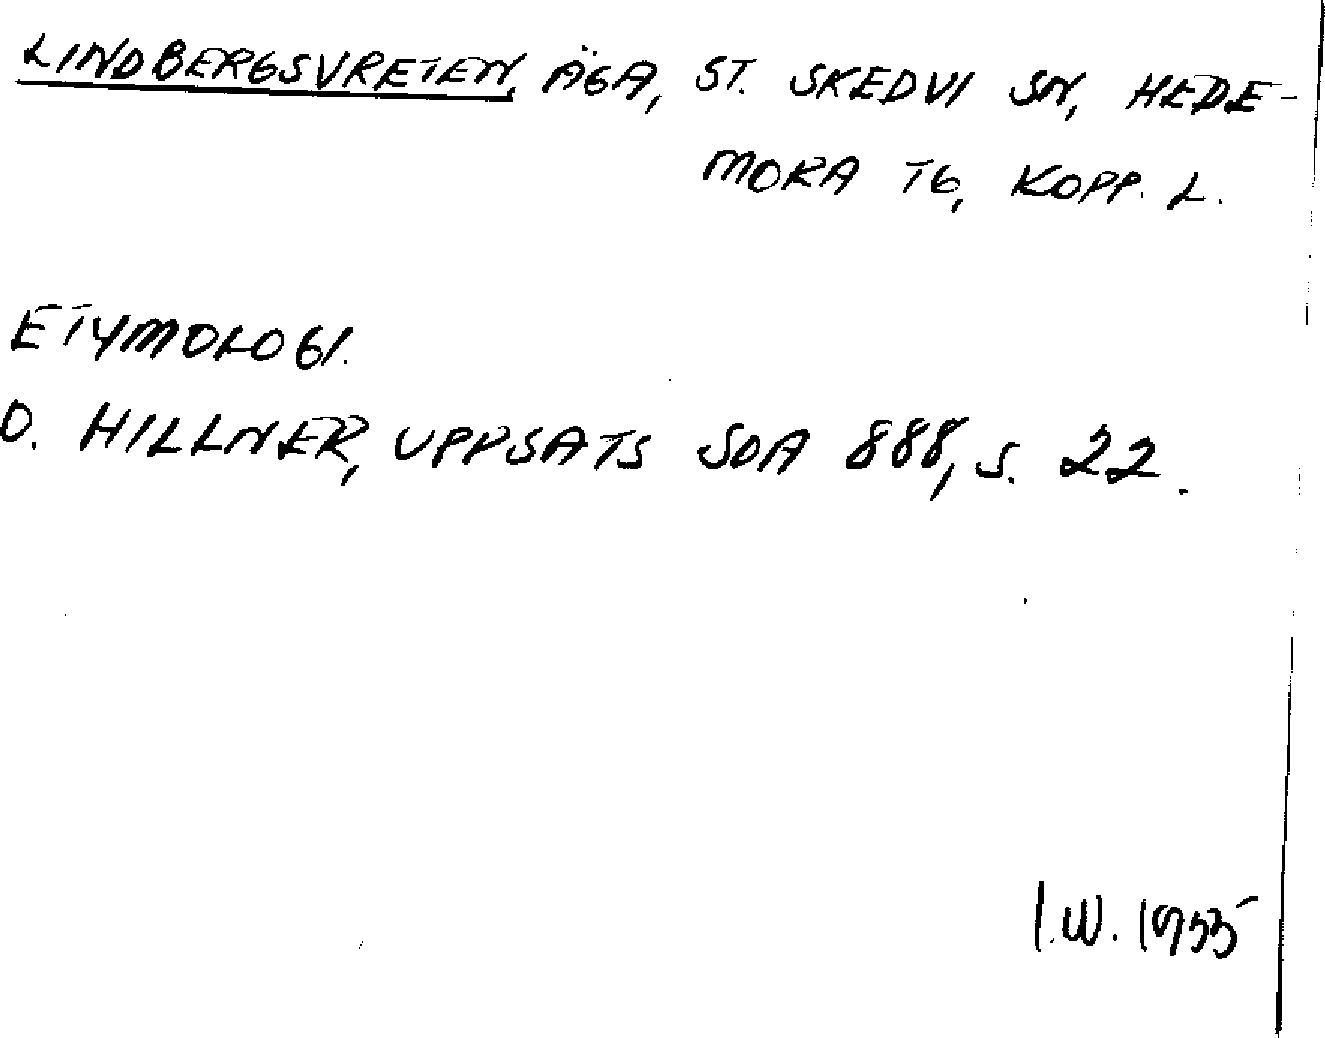 LINDBERGSVRETEN, ÄGA, ST. SKEDVI SN, HEDE-
MORA TG, KOPP. L.
ETYMOLOGI.
O. HILLNER, UPPSATS SOA 888, S. 22.
I.W. 1955